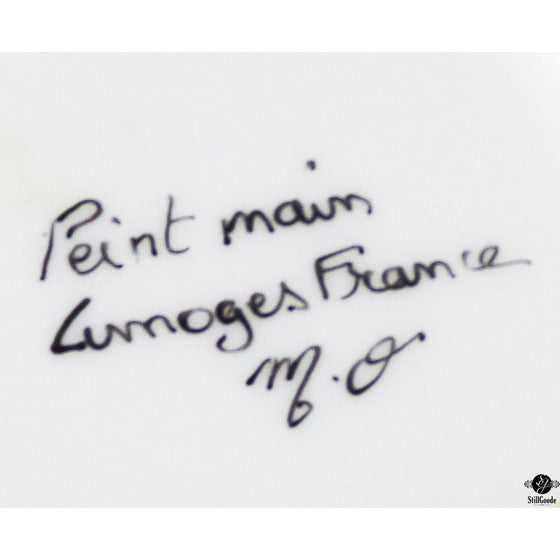 Peint main
Limoges France
M.O
StillGoode